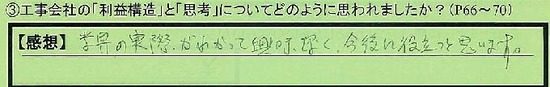 ③工事会社の「利益構造」と「思考」についてどのように思われましたか？(P66～70)
【感想】業界の実際がわかって興味深く、今後に役立つと思います。